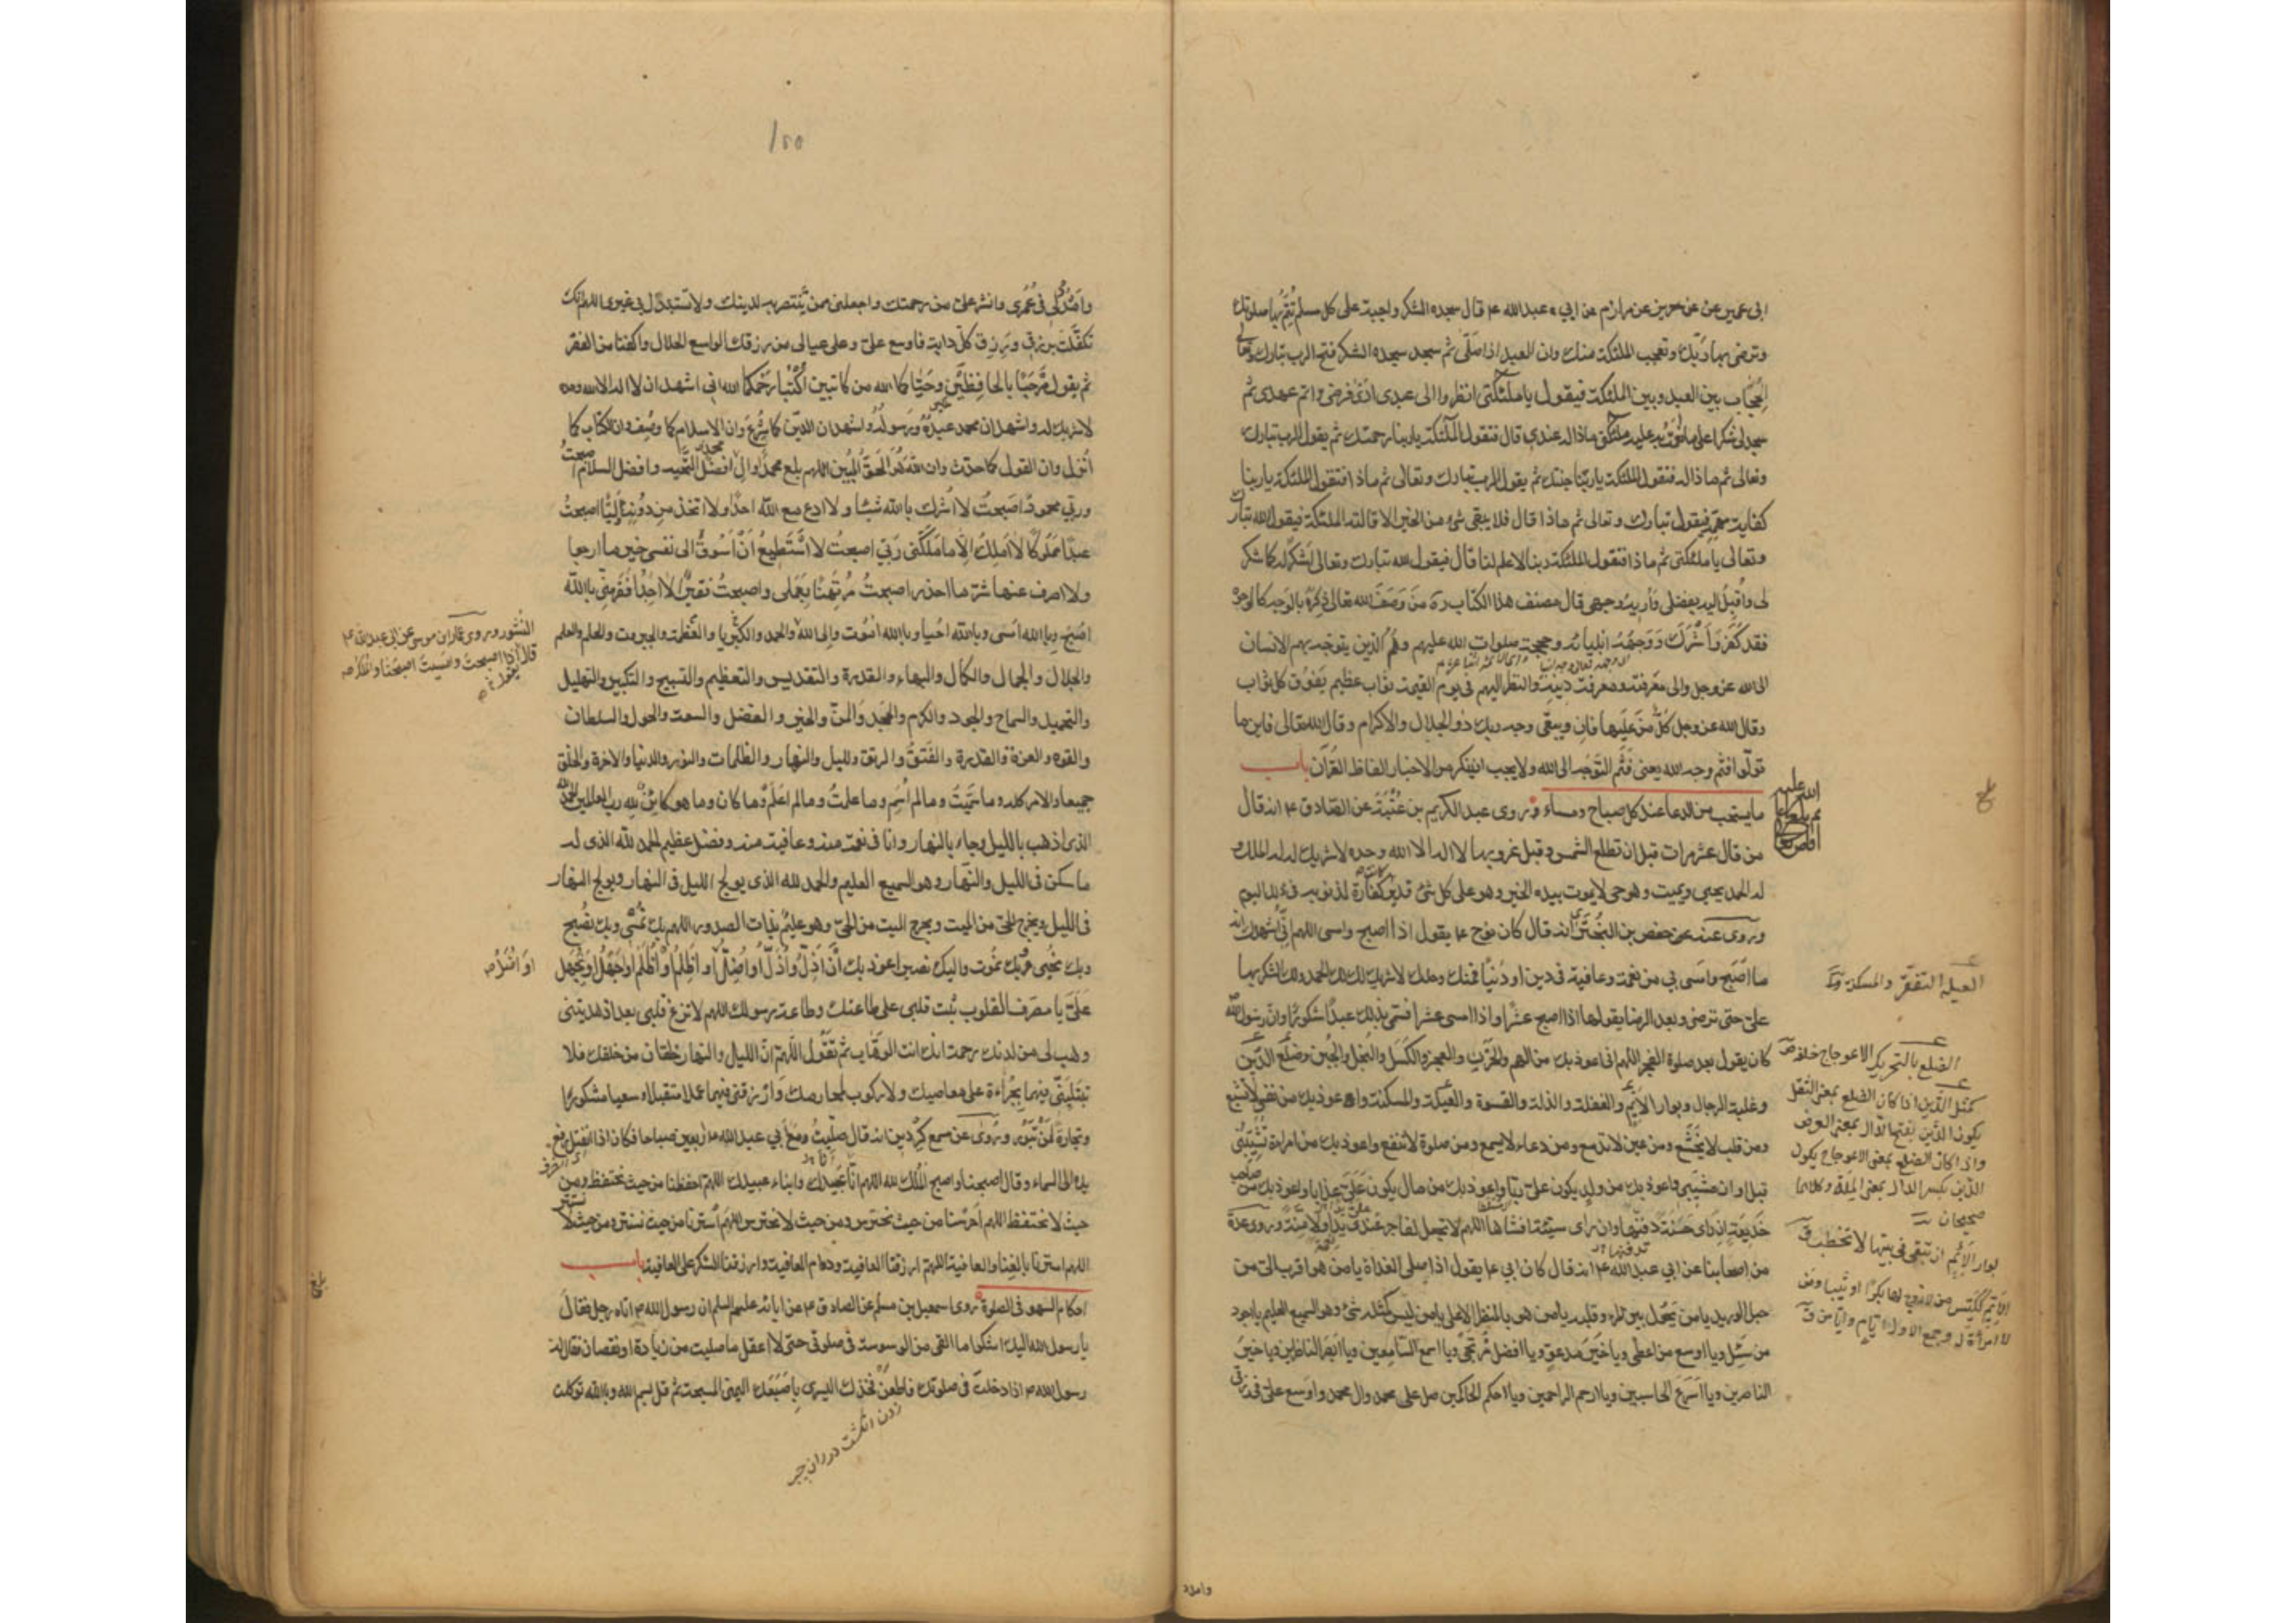 ابى عمير عن حريز عن مرازم عن ابي عبد الله ع قال سجدة الشكر واجبة على كل مسلم تتم بها صلوتك
وترضى بها ربك وتعجب الملئكة منك وان العبد اذا صلى ثم سجد سجدة الشكر فتح الرب تبارك وتعالى
الحجاب بين العبد وبين الملئكة فيقول يا ملئكتى انظروا الى عبدى ادى فرضى واتم عهدى ثم
سجد لى شكرا على ما انعمت به عليه ملئكتى ماذا له عندى قال فتقول الملئكة يا ربنا رحمتك ثم يقول الرب تبارك
وتعالى ثم ماذا له فتقول الملئكة يا ربنا جنتك ثم يقول الرب تبارك وتعالى ثم ماذا فتقول الملئكة يا ربنا
كفاية مهمه فيقول تبارك وتعالى ثم ماذا قال فلا يبقى شئ من الخير الا قالته الملئكة فيقول الله تبارك
وتعالى يا ملئكتى ثم ماذا فتقول الملئكة ربنا لا علم لنا قال فيقول الله تبارك وتعالى اشكر له كما شكر
لى واقبل اليه بفضلى واريه وجهى قال مصنف هذا الكتاب ره من وصف الله تعالى ذكره بالوجه كالوجوه
فقد كفر واشرك ووجهه انبيائه وحججه صلوات الله عليهم وهم الذين يتوجه بهم الانسان
الى الله عز وجل والى معرفته ومعرفة دينه والنظر اليهم فى يوم القيمة ثواب عظيم يفوق كل ثواب
وقال الله عز وجل كل من عليها فان ويبقى وجه ربك ذو الجلال والاكرام وقال الله تعالى فاين ما
تولوا فثم وجه الله يعنى فثم التوجه الى الله ولا يجب ان ينكر من الاخبار الفاظ القران باب
ما يستحب من الدعا عند كل صباح ومساء روى عبد الكريم بن عتبة عن الصادق ع انه قال
من قال عشر مرات قبل ان تطلع الشمس وقبل غروبها لا اله الا الله وحده لا شريك له له الملك و
له الحمد يحيى ويميت وهو حى لا يموت بيده الخير وهو على كل شئ قدير كفارة لذنوبه فى ذلك اليوم
وروى عنه حفص بن البخترى انه قال كان نوح ع يقول اذا اصبح وامسى اللهم انى اشهدك انه
ما اصبح وامسى بى من نعمة وعافية فى دين او دنيا فمنك وحدك لا شريك لك لك الحمد ولك الشكر بها
على حتى ترضى وبعد الرضا يقولها اذا اصبح عشرا واذا امسى عشرا فسمى بذلك عبدا شكورا وان رسول الله
كان يقول بعد صلوة الفجر اللهم انى اعوذ بك من الهم والحزن والعجز والكسل والبخل والجبن وضلع الدين
وغلبة الرجال وبوار الايم والغفلة والذلة والقسوة والعيلة والمسكنة واعوذ بك من نفس لا تشبع
ومن قلب لا يخشع ومن عين لا تدمع ومن دعاء لا يسمع ومن صلوة لا تنفع واعوذ بك من امراة تشيبنى
قبل اوان مشيبى واعوذ بك من ولد يكون على ربا واعوذ بك من مال يكون على عذابا واعوذ بك من صاحب
خديعة ان راى حسنة دفنها وان راى سيئة افشاها اللهم لا تجعل لفاجر عندى يدا ولا منة وروى عدة
من اصحابنا عن ابي عبد الله ع انه قال كان ابي ع يقول اذا صلى الغداة يا من هو اقرب الى من
حبل الوريد يا من يحول بين المرء وقلبه يا من هو بالمنظر الاعلى يا من ليس كمثله شئ وهو السميع العليم يا اجود
من سئل ويا اوسع من اعطى ويا خير مدعو ويا افضل مرتجى ويا اسمع السامعين ويا ابصر الناظرين ويا خير
الناصرين ويا اسرع الحاسبين ويا ارحم الراحمين ويا احكم الحاكمين صل على محمد وال محمد واوسع على فى رزقى
العيلة التفقر والمسكنة
الضلع بالتحريك الاعوجاج خلقة
ثقل الدين اذا كان الضلع بمعنى الثقل
يكون الدين بفتح الدال بمعنى القرض
واذا كان الضلع بمعنى الاعوجاج يكون
الدين بكسر الدال بمعنى الملة وكلاهما
صحيحان
بوار الايم ان تبقى فى بيتها لا تخطب ق
الايم ككيس من لا زوج لها بكرا او ثيبا ومن
لا امراة له وجمع الاول ايايم وايامى ق
وامدد
١٥٥
وامدد لى فى عمرى وانشر على من رحمتك واجعلنى ممن تنتصر به لدينك ولا تستبدل بى غيرى اللهم انك
تكفلت برزقى ورزق كل دابة فاوسع على وعلى عيالى من رزقك الواسع الحلال واكفنا من الفقر
ثم يقول مرحبا بالحافظين وحياكما الله من كاتبين اكتبا رحمكما الله انى اشهد ان لا اله الا الله وحده
لا شريك له واشهد ان محمدا عبده ورسوله واشهد ان الدين كما شرع وان الاسلام كما وصف وان الكتاب كما
انزل وان القول كما حدث وان الله هو الحق المبين اللهم بلغ محمدا وال محمد افضل التحية وافضل السلام اصبحت
وربي محمود اصبحت لا اشرك بالله شيئا ولا ادع مع الله احدا ولا اتخذ من دونه وليا اصبحت
عبدا مملوكا لا املك الا ما ملكنى ربى اصبحت لا استطيع ان اسوق الى نفسى خير ما ارجوا
ولا اصرف عنها شر ما احذر اصبحت مرتهنا بعملى واصبحت فقيرا لا اجد افقر منى بالله
اصبح وبالله امسى وبالله احيا وبالله اموت والى الله النشور وروى عمار بن موسى عن ابى عبد الله ع
قال تقول اذا اصبحت وامسيت اصبحنا والملك
والحمد والكبرياء والعظمة والجبروت والحلم والعلم
والجلال والجمال والكمال والبهاء والقدرة والتقديس والتعظيم والتسبيح والتكبير والتهليل
والتحميد والسماح والجود والكرم والمجد والمن والخير والفضل والسعة والحول والسلطان
والقوة والعزة والقدرة والفتق والرتق والليل والنهار والظلمات والنور والدنيا والاخرة والخلق
جميعا والامر كله وما سميت وما لم اسم وما علمت وما لم اعلم وما كان وما هو كائن لله رب العالمين الحمد لله
الذى اذهب بالليل وجاء بالنهار وانا فى نعمة منه وعافية منه وفضل عظيم الحمد لله الذى له
ما سكن فى الليل والنهار وهو السميع العليم والحمد لله الذى يولج الليل فى النهار ويولج النهار
فى الليل ويخرج الحى من الميت ويخرج الميت من الحى وهو عليم بذات الصدور اللهم بك نمسى وبك نصبح
وبك نحيى وبك نموت واليك نصير اعوذ بك ان اذل او اذل او اضل او اظلم او اظلم او اجهل او يجهل
على يا مصرف القلوب ثبت قلبى على طاعتك وطاعة رسولك اللهم لا تزغ قلبى بعد اذ هديتنى
وهب لى من لدنك رحمة انك انت الوهاب ثم تقول اللهم ان الليل والنهار خلقان من خلقك فلا
تبتلينى فيهما بجراءة على معاصيك ولا ركوب لمحارمك وارزقنى فيهما عملا متقبلا وسعيا مشكورا
وتجارة لن تبور وروى عن مسمع كردين انه قال صليت مع ابي عبد الله ع اربعين صباحا فكان اذا انفتل رفع
يده الى السماء وقال اصبحنا واصبح الملك لله اللهم انا عبيدك وابناء عبيدك اللهم احفظنا من حيث نحتفظ ومن
حيث لا نحتفظ اللهم احرسنا من حيث نحترس ومن حيث لا نحترس اللهم استرنا من حيث نستتر ومن حيث لا نستتر
اللهم استرنا بالغنا والعافية اللهم ارزقنا العافية ودوام العافية وارزقنا الشكر على العافية باب
احكام السهو فى الصلوة روى اسمعيل بن مسلم عن الصادق ع عن ابائه عليهم السلم ان رسول الله ص اتاه رجل فقال
يا رسول الله اليك اشكوا ما القى من الوسوسة فى صلوتى حتى لا اعقل ما صليت من زيادة او نقصان فقال له
رسول الله ص اذا دخلت فى صلوتك فاطعن فخذك اليسرى باصبعك اليمنى المسبحة ثم قل بسم الله وبالله توكلت
او اضل
زدن انگشت در ران چپ
بلغ